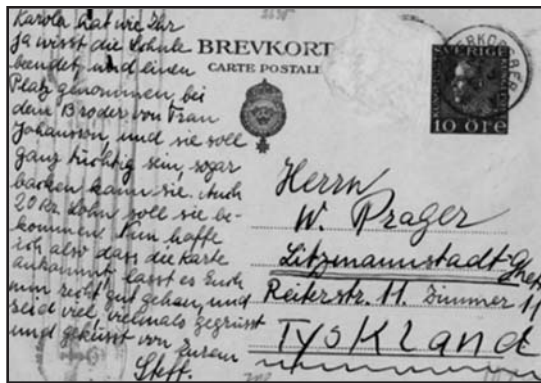 Karola hat wie Ihr
ja wisst die Schule
beendet, und einen
Platz genommen bei
dem Broder von Frau
Johansson, und sie soll
ganz tüchtig sein, sogar
backen kann sie. Auch
20 Kr. Lohn soll sie be-
kommen. Nun hoffe
ich also dass die Karte
ankommt, lasst es Euch
nun recht gut gehen, und
seid viel, vielmals gegrüsst
und geküsst von Eurem
Steff.
BREVKORT
CARTE POSTALE
SVERIGE
10 ÖRE
Herrn
W. Prager
Litzmannstadt-Ghetto
Reiterstr. 11. Zimmer 11
Tyskland